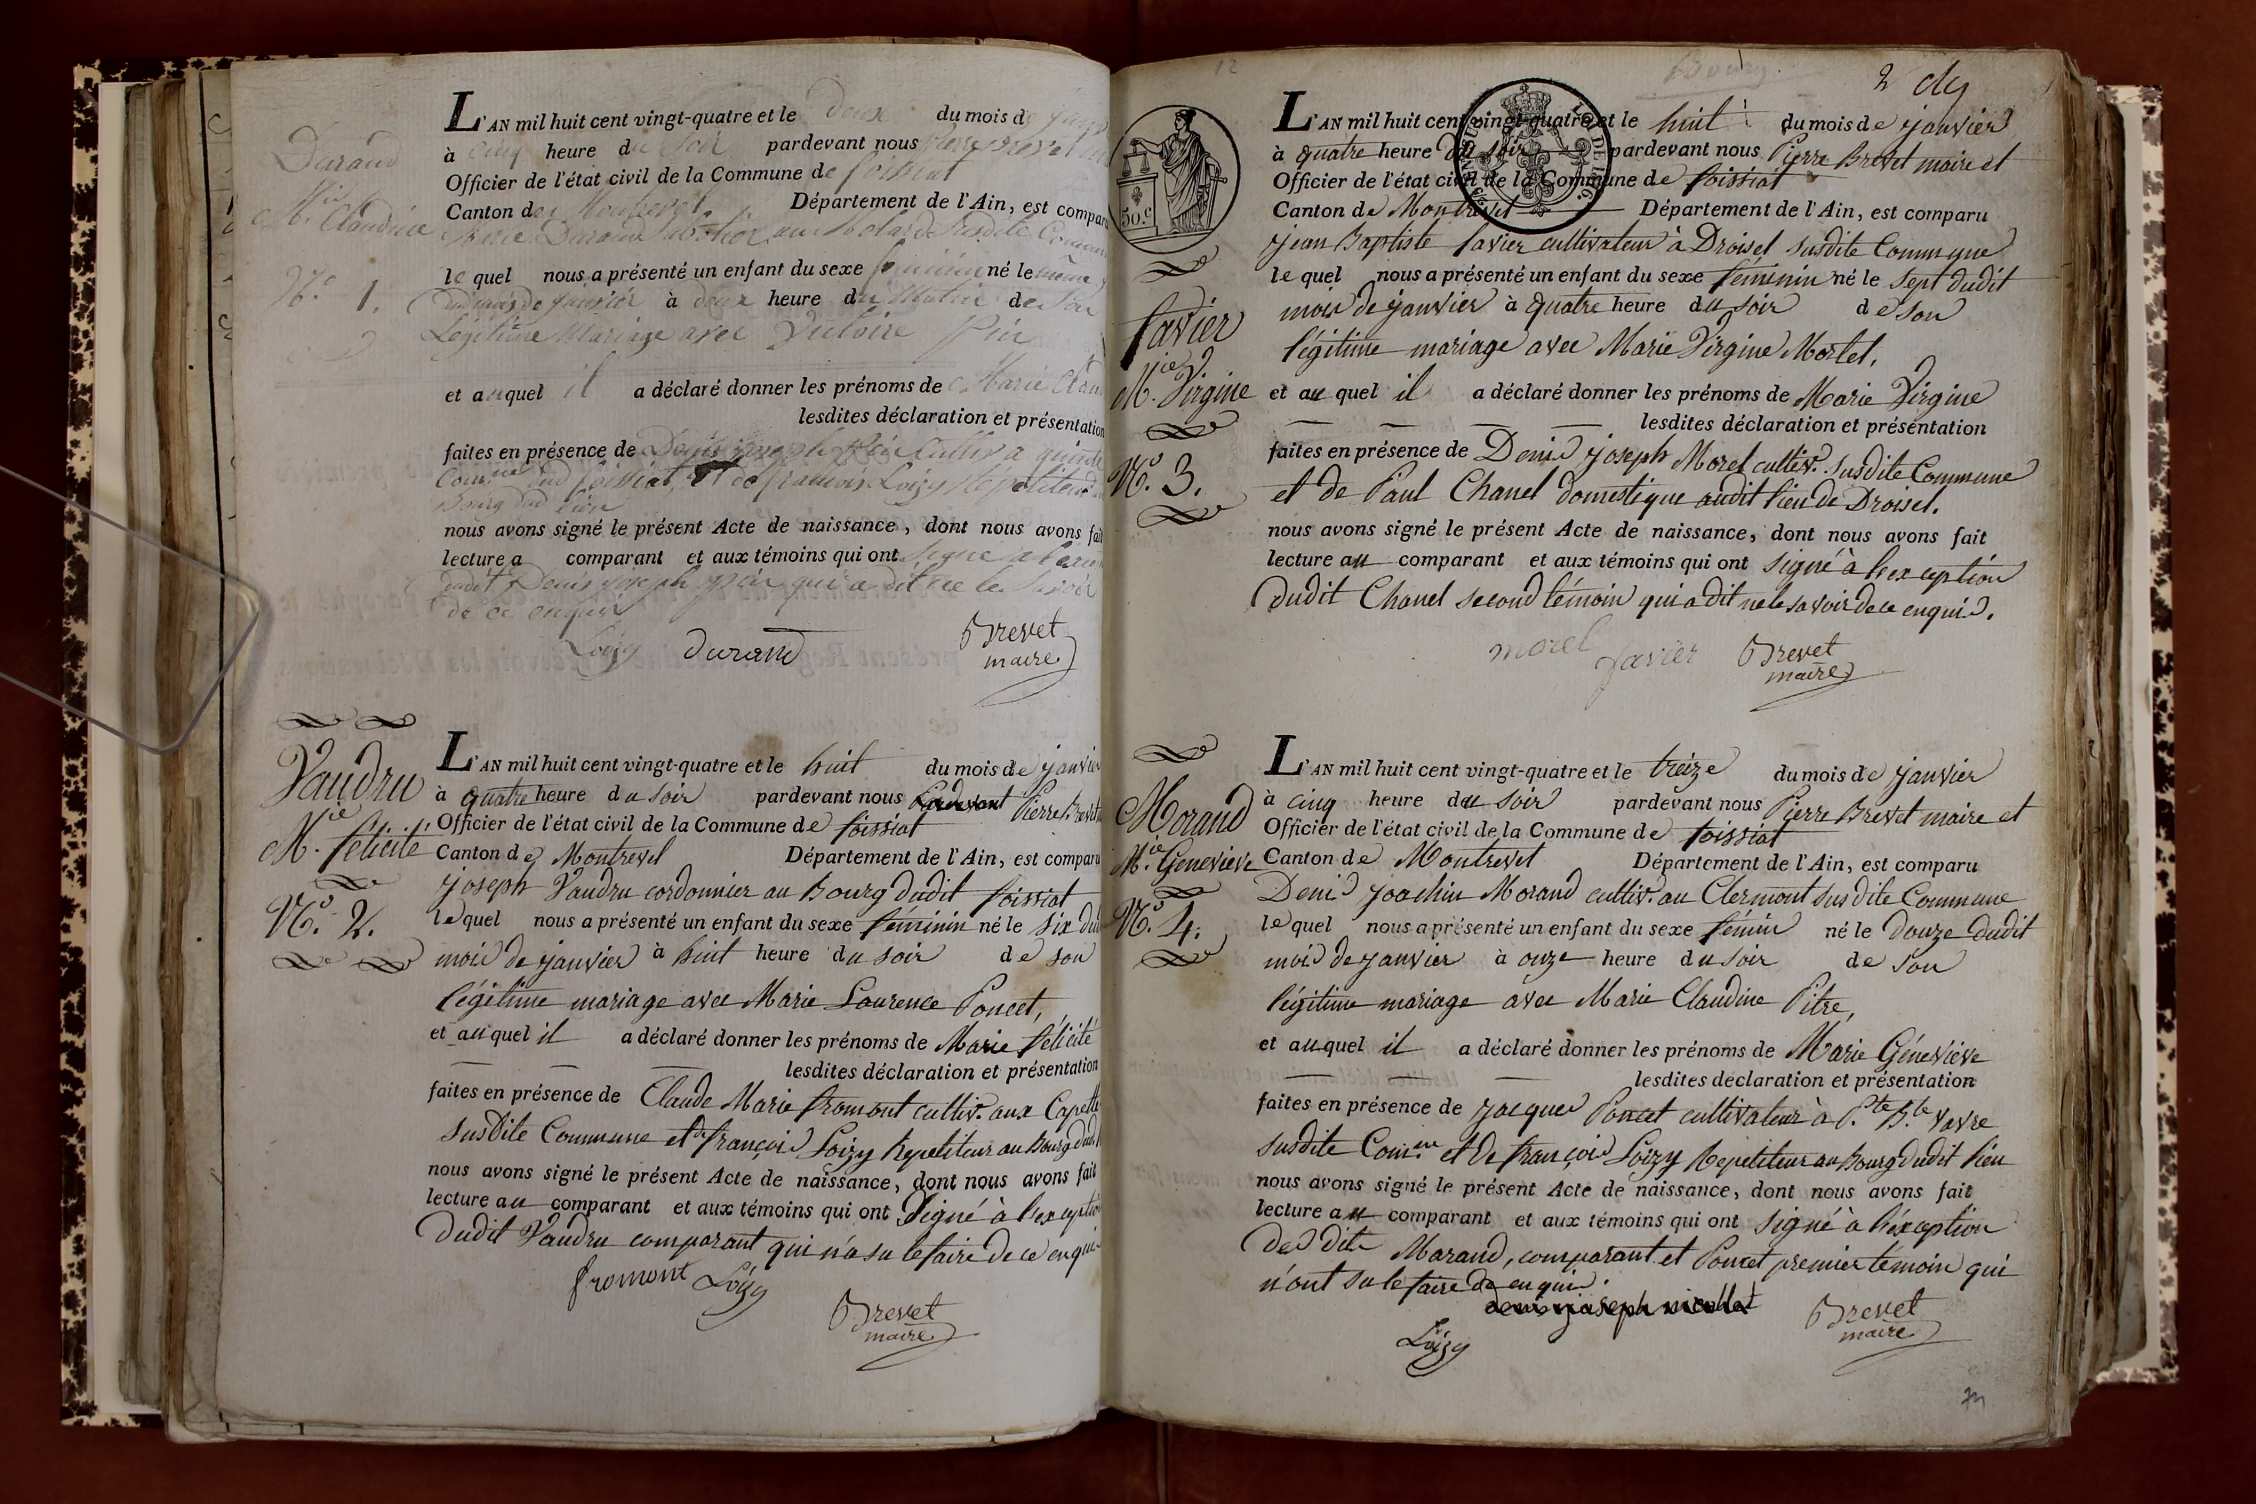 Durand
M.ie Claudine
N.o 1.
L'AN mil huit cent vingt-quatre et le deux du mois de
à cinq heure du soir pardevant nous Pierre Brevet
Officier de l'état civil de la Commune de foissiat
Canton de Montrevel Département de l'Ain, est comparu
Durand susdite Commune
lequel nous a présenté un enfant du sexe féminin né le même
dud mois de janvier à deux heure du Matin de son
Légitime Mariage avec Victoire
et auquel il a déclaré donner les prénoms de Marie
lesdites déclaration et présentation
faites en présence de Denis joseph
foissiat et de françois Loizy Répétiteur
Bourg dud lieu
nous avons signé le présent Acte de naissance, dont nous avons fait
lecture a comparant et aux témoins qui ont signé
dudit Denis joseph qui a dit ne le savoir
de ce enquis
Loizy Durand Brevet
maire
Vaudru
M.ie félicité
N.o 2.
L'AN mil huit cent vingt-quatre et le huit du mois de janvier
à quatre heure du soir pardevant nous Pierre Brevet
Officier de l'état civil de la Commune de foissiat
Canton de Montrevel Département de l'Ain, est comparu
joseph Vaudru cordonnier au Bourg dudit foissiat
lequel nous a présenté un enfant du sexe féminin né le six du
mois de janvier à huit heure du soir de son
légitime mariage avec Marie Laurence Poncet,
et auquel il a déclaré donner les prénoms de Marie félicité
lesdites déclaration et présentation
faites en présence de Claude Marie fromont cultiv.r aux
susdite Commune et de françois Loizy Repetiteur au Bourg dud
nous avons signé le présent Acte de naissance, dont nous avons fait
lecture au comparant et aux témoins qui ont signé à l'exception
dudit Vaudru comparant qui n'a su le faire de ce enquis
fromont Loizy
Brevet
maire
12
2
50.c
favier
M.ie Virgine
N.o 3.
L'AN mil huit cent vingt-quatre et le huit du mois de janvier
à quatre heure du soir pardevant nous Pierre Brevet maire et
Officier de l'état civil de la Commune de foissiat
Canton de Montrevel Département de l'Ain, est comparu
jean Baptiste favier cultivateur à Droisel susdite Commune
lequel nous a présenté un enfant du sexe féminin né le sept dudit
mois de janvier à quatre heure du soir de son
légitime mariage avec Marie Virgine Morlel.
et au quel il a déclaré donner les prénoms de Marie Virgine
lesdites déclaration et présentation
faites en présence de Denis joseph Morel cultiv.r susdite Commune
et de Paul Chanel domestique audit lieu de Droisel.
nous avons signé le présent Acte de naissance, dont nous avons fait
lecture au comparant et aux témoins qui ont signé à l'exception
dudit Chanel second témoin qui a dit ne le savoir de ce enquis.
morel favier Brevet
maire
Morand
M.ie Genevieve
N.o 4.
L'AN mil huit cent vingt-quatre et le treize du mois de janvier
à cinq heure du soir pardevant nous Pierre Brevet maire et
Officier de l'état civil de la Commune de foissiat
Canton de Montrevel Département de l'Ain, est comparu
Denis joachin Morand cultiv.r au Clermont susdite Commune
lequel nous a présenté un enfant du sexe fémin né le douze dudit
mois de janvier à onze heure du soir de son
légitime mariage avec Marie Claudine Pitre,
et auquel il a déclaré donner les prénoms de Marie Généviève
lesdites declaration et présentation
faites en présence de jacques Poncet cultivateur à P.te B.te vavre
susdite Com.ne et de françois Loizy Repetiteur au Bourg dudit lieu
nous avons signé le présent Acte de naissance, dont nous avons fait
lecture au comparant et aux témoins qui ont signé à l'éxception
des dits Morand, comparant et Poncet premier témoin qui
n'ont su le faire de enquis.
denis joseph nicollet
Brevet
maire
Loizy